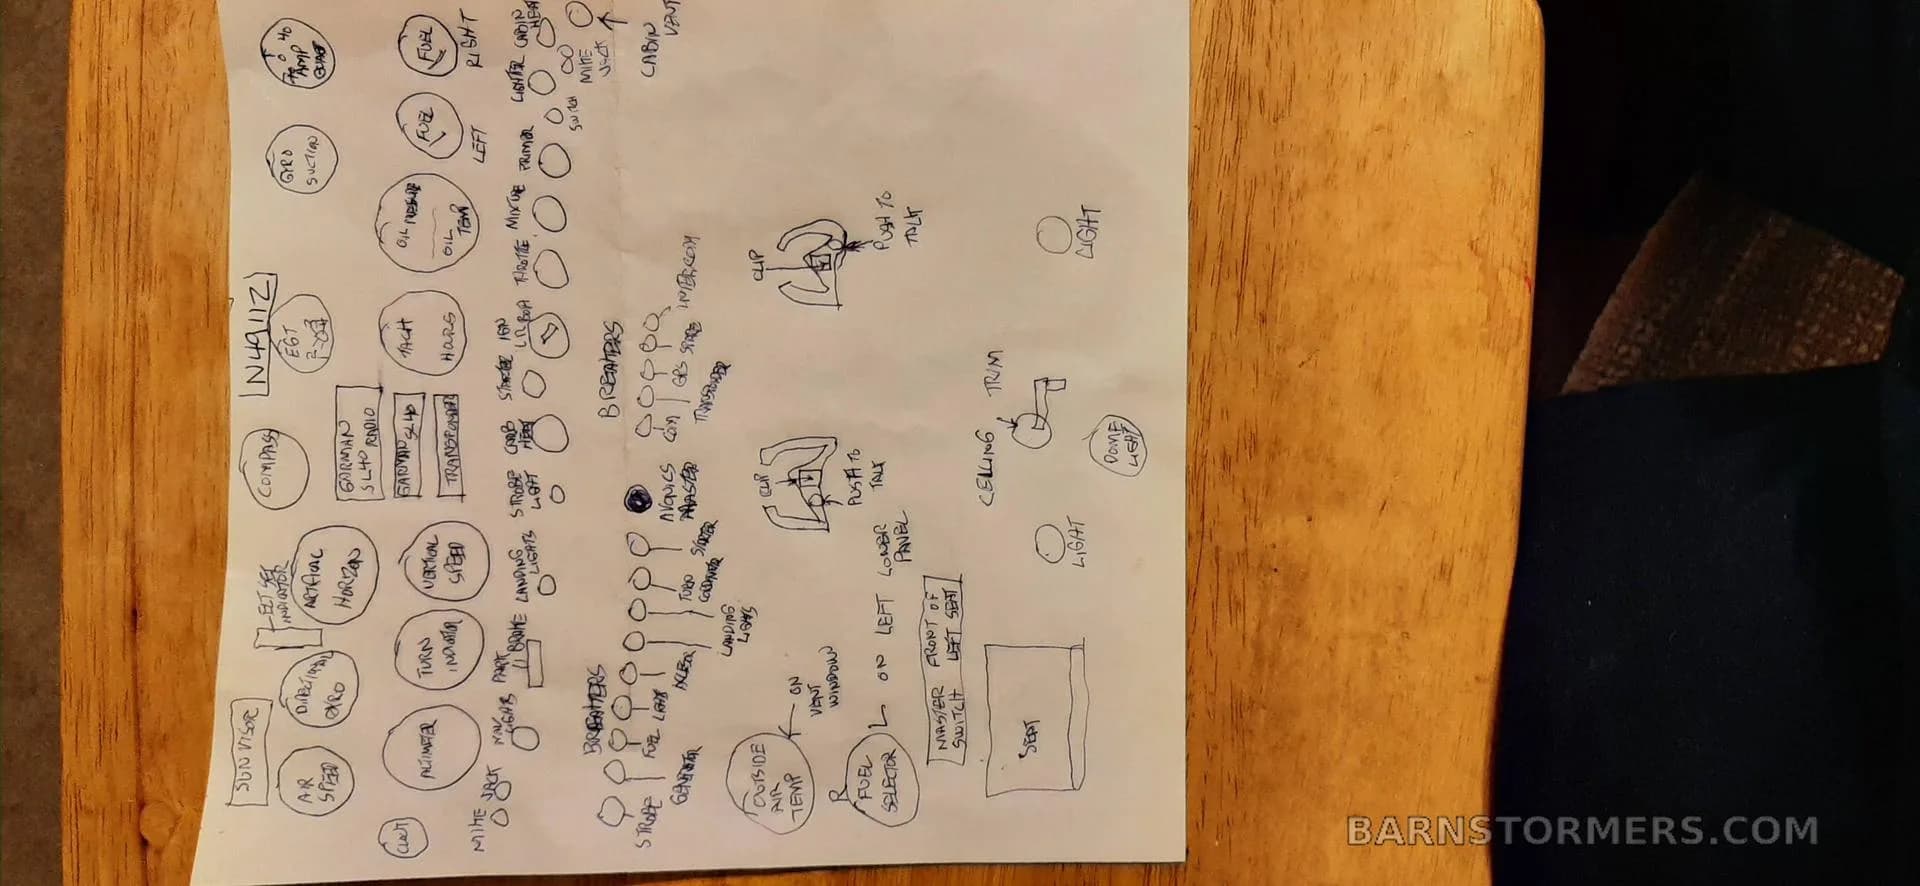 SUN VISOR
AIR
SPEED
DIRECTIONAL
GYRO
INDICATOR
ARTIFICIAL
HORIZON
COMPASS
N4911Z
EGT
GYRO
SUCTION
40 0 40
AMP
GUAGE
CLOCK
ALTIMETER
TURN
INDICATOR
VERTICAL
SPEED
GARMAN
SL40
RADIO
GARMAN
SL40
TRANSPONDER
TACH
HOURS
OIL PRESSURE
OIL
TEMP
FUEL
LEFT
FUEL
RIGHT
MIKE JACK
NAV
LIGHTS
PARK
BRAKE
LANDING
LIGHTS
STROBE
LIGHT
CARB
HEAT
STARTER
IGN
L R BOTH
THROTTLE
MIXTURE
PRIMER
SWITCH
LIGHTER
CABIN
HEAT
MIKE
JACK
CABIN
VENT
BREAKERS
STROBE
GENERATOR
FUEL
LIGHT
LANDING
LIGHTS
TURN
STARTER
AVONICS
MASTER
BREAKERS
COM
TRANSPONDER
GPS
INTERCOM
OUTSIDE
AIR
TEMP
ON
VENT
WINDOW
CLIP
PUSH TO
TALK
CLIP
PUSH TO
TALK
R
FUEL
SELECTOR
L
ON LEFT LOWER
PANEL
MASTER
SWITCH
FRONT OF
LEFT SEAT
SEAT
CEILING
TRIM
LIGHT
LIGHT
DOME
LIGHT
BARNSTORMERS.COM